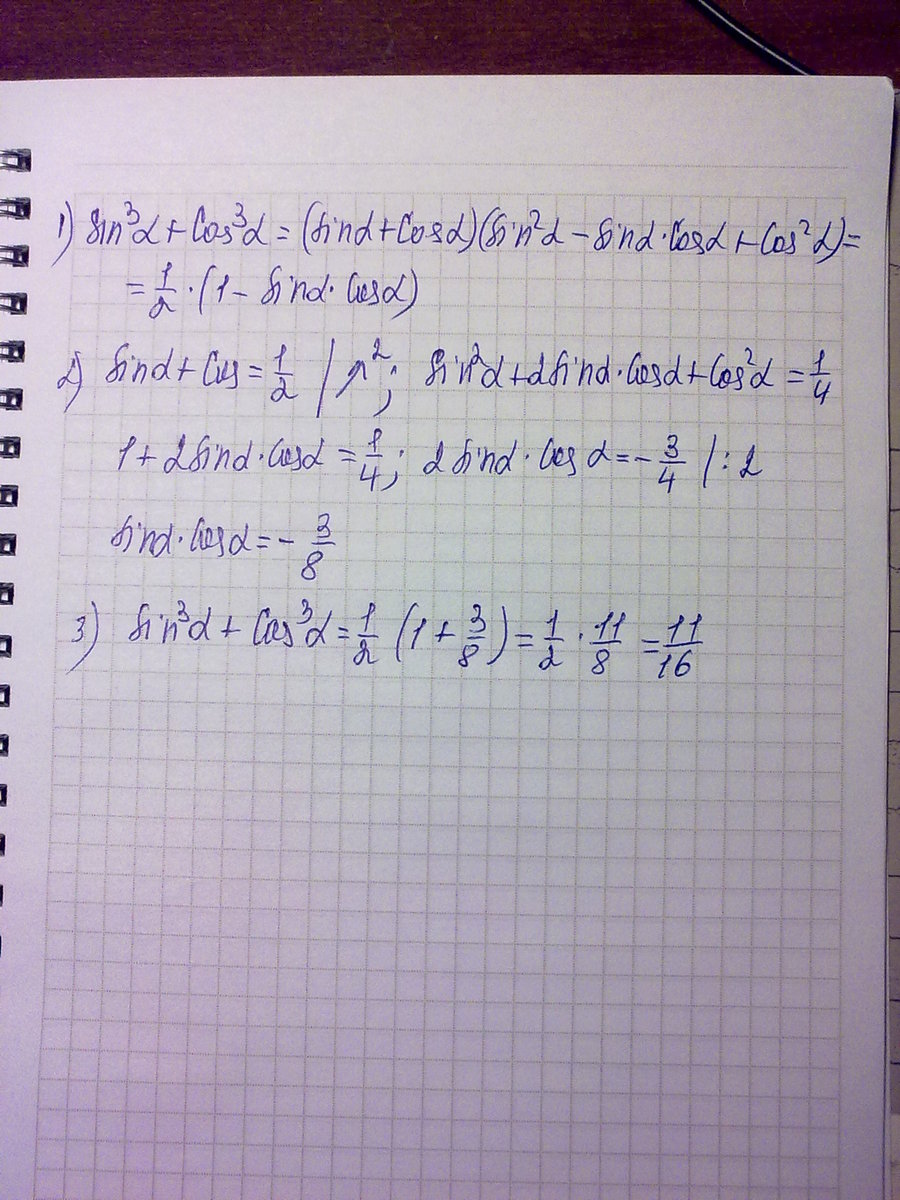 1) sin³α + cos³α = (sinα + cosα)(sin²α − sinα·cosα + cos²α) =
= 1/2 · (1 − sinα·cosα)
2) sinα + cos = 1/2 | ^2; sin²α + 2sinα·cosα + cos²α = 1/4
1 + 2sinα·cosα = 1/4; 2sinα·cosα = −3/4 | :2
sinα·cosα = −3/8
3) sin³α + cos³α = 1/2 (1 + 3/8) = 1/2 · 11/8 = 11/16